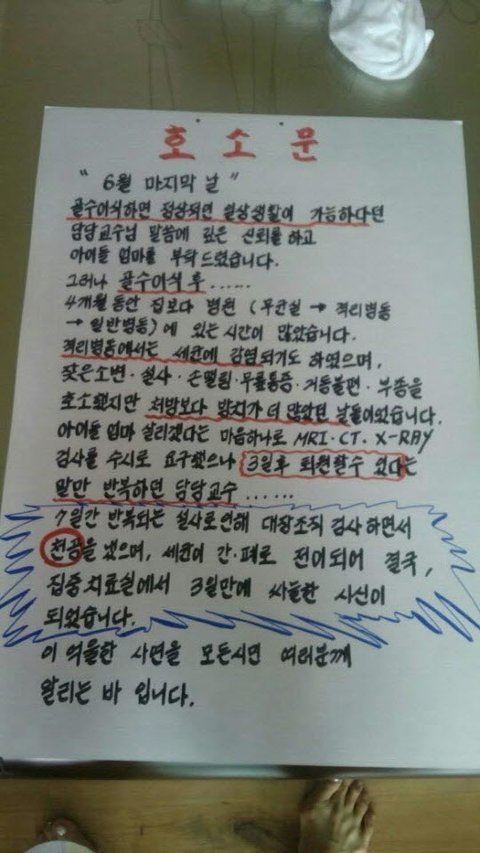 호소문
" 6월 마지막 날 "
골수이식하면 정상적인 일상생활이 가능하다던
담당교수님 말씀에 깊은 신뢰를 하고
아이들 엄마를 부탁드렸습니다.
그러나 골수이식 후......
4개월 동안 집보다 병원 (무균실 → 격리병동
→ 일반병동)에 있는 시간이 많았습니다.
격리병동에서는 세균에 감염되기도 하였으며,
잦은소변·설사·손떨림·무릎통증·거동불편·부종을
호소했지만 처방보다 방치가 더 많았던 날들이었습니다.
아이들 엄마 살리겠다는 마음하나로 MRI·CT·X-RAY
검사를 수시로 요구했으나 3일후 퇴원할수 있다는
말만 반복하던 담당교수......
7일간 반복되는 설사로인해 대장조직 검사하면서
천공을 냈으며, 세균이 간·폐로 전이되어 결국,
집중치료실에서 3일만에 싸늘한 시신이
되었습니다.
이 억울한 사연을 모든시민 여러분께
알리는 바 입니다.